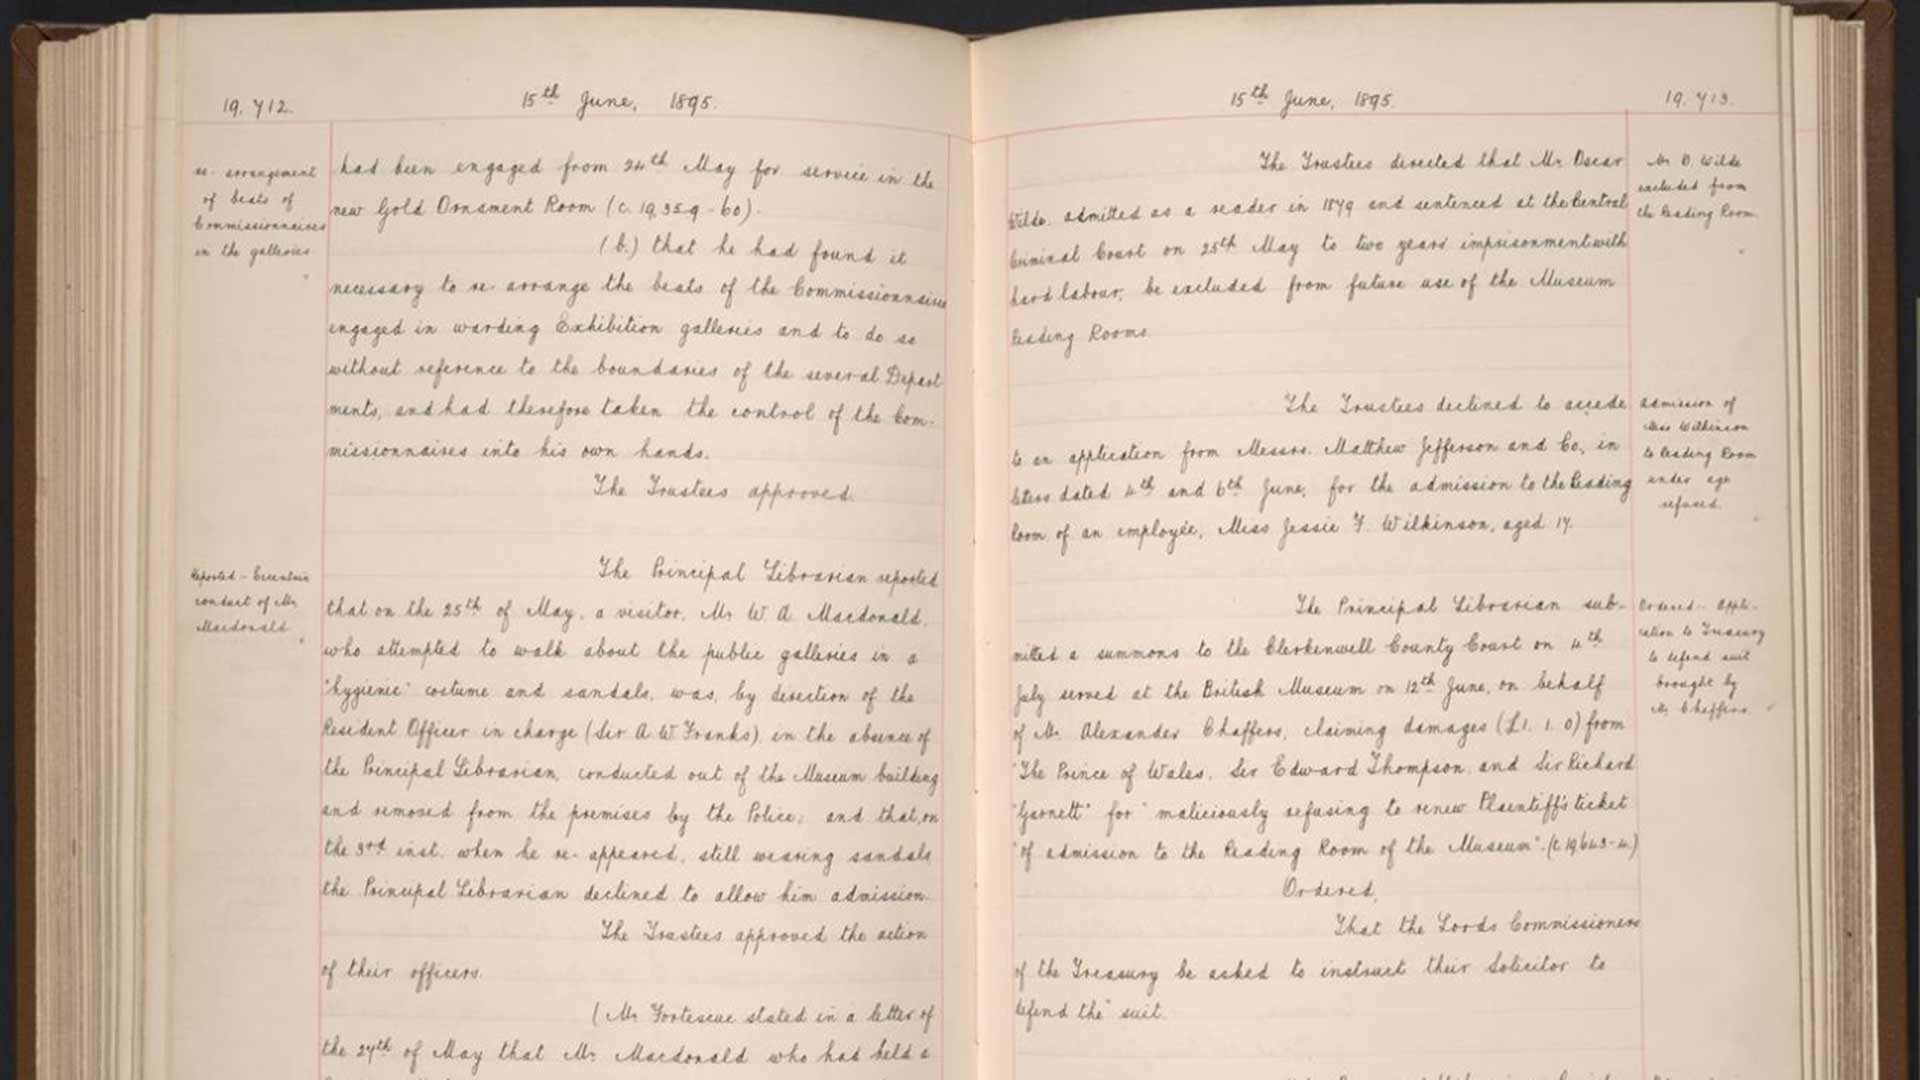 19.712.
15th June, 1895.
re-arrangement
of beats of
Commissionnaires
in the galleries
had been engaged from 24th May for service in the
new Gold Ornament Room (C. 19,359-60).
(b.) that he had found it
necessary to re-arrange the beats of the Commissionnaires
engaged in warding Exhibition galleries and to do so
without reference to the boundaries of the several Depart
ments, and had therefore taken the control of the Com-
missionnaires into his own hands.
The Trustees approved.
Reported - Eccentric
conduct of Mr.
Macdonald
The Principal Librarian reported
that on the 25th of May, a visitor, Mr. W. A. Macdonald,
who attempted to walk about the public galleries in a
"hygienic" costume and sandals, was, by direction of the
Resident Officer in charge (Sir A. W. Franks), in the absence of
the Principal Librarian, conducted out of the Museum building
and removed from the premises by the Police; and that, on
the 3rd inst. when he re-appeared, still wearing sandals
the Principal Librarian declined to allow him admission.
The Trustees approved the action
of their officers.
(Mr. Fortescue stated in a letter of
the 27th of May that Mr. Macdonald who had held a
15th June, 1895.
19.713.
The Trustees directed that Mr. Oscar
Wilde, admitted as a reader in 1879 and sentenced at the Central
Criminal Court on 25th May to two years' imprisonment with
hard labour, be excluded from future use of the Museum
Reading Rooms.
Mr. O. Wilde
excluded from
the Reading Room
The Trustees declined to accede
to an application from Messrs. Matthew Jefferson and Co., in
letters dated 4th and 6th June, for the admission to the Reading
Room of an employée, Miss Jessie F. Wilkinson, aged 17.
Admission of
Miss Wilkinson
to Reading Room
under age
refused.
The Principal Librarian sub-
mitted a summons to the Clerkenwell County Court on 4th
July served at the British Museum on 12th June, on behalf
of Mr. Alexander Chaffers, claiming damages (£1. 1. 0) from
"The Prince of Wales, Sir Edward Thompson, and Sir Richard
"Garnett" for "maliciously refusing to renew Plaintiff's ticket
"of admission to the Reading Room of the Museum". (C. 19,643-4)
Ordered - Appli-
cation to Treasury
to defend suit
brought by
Mr. Chaffers.
Ordered,
That the Lords Commissioners
of the Treasury be asked to instruct their Solicitor to
defend the suit.